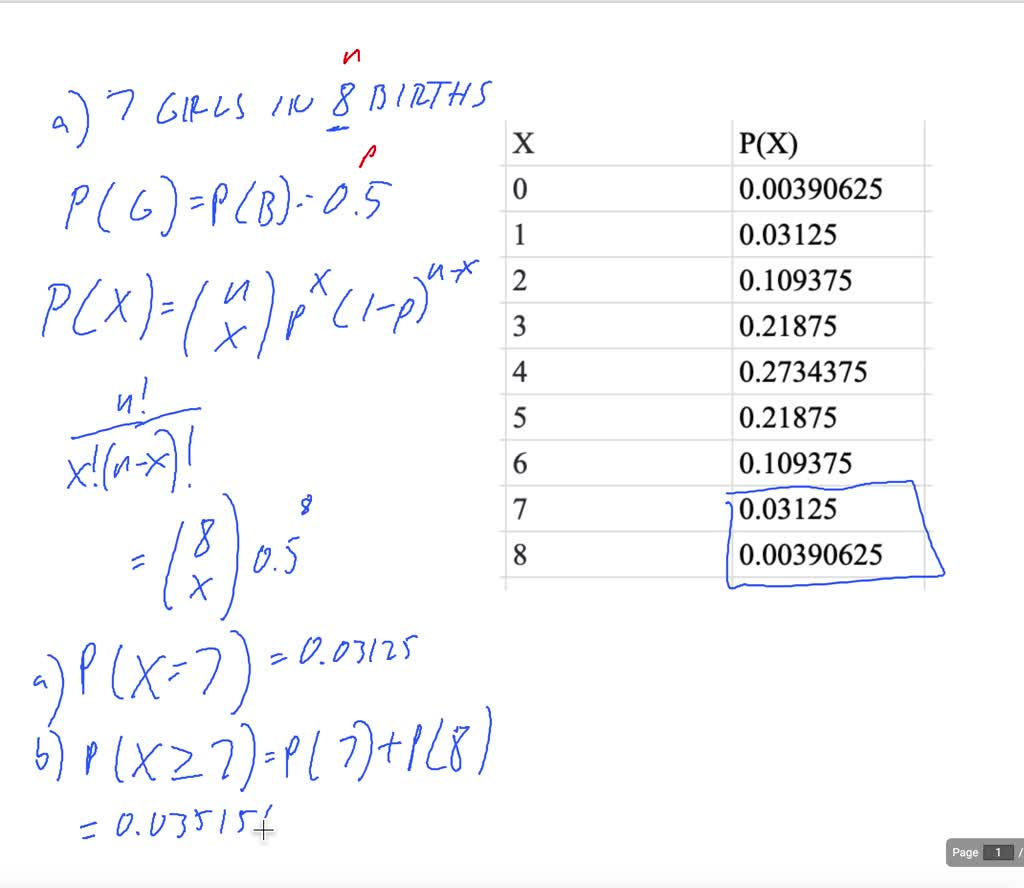 n
a) 7 GIRLS IN 8 BIRTHS
p
P(G)=P(B)=0.5
P(X)=(n x) p^x (1-p)^n-x
n!
x!(n-x)!
=(8 x) 0.5^8
a) P(X=7)=0.03125
b) P(X≥7)=P(7)+P(8)
=0.03515
X P(X)
0 0.00390625
1 0.03125
2 0.109375
3 0.21875
4 0.2734375
5 0.21875
6 0.109375
7 0.03125
8 0.00390625
Page 1 /